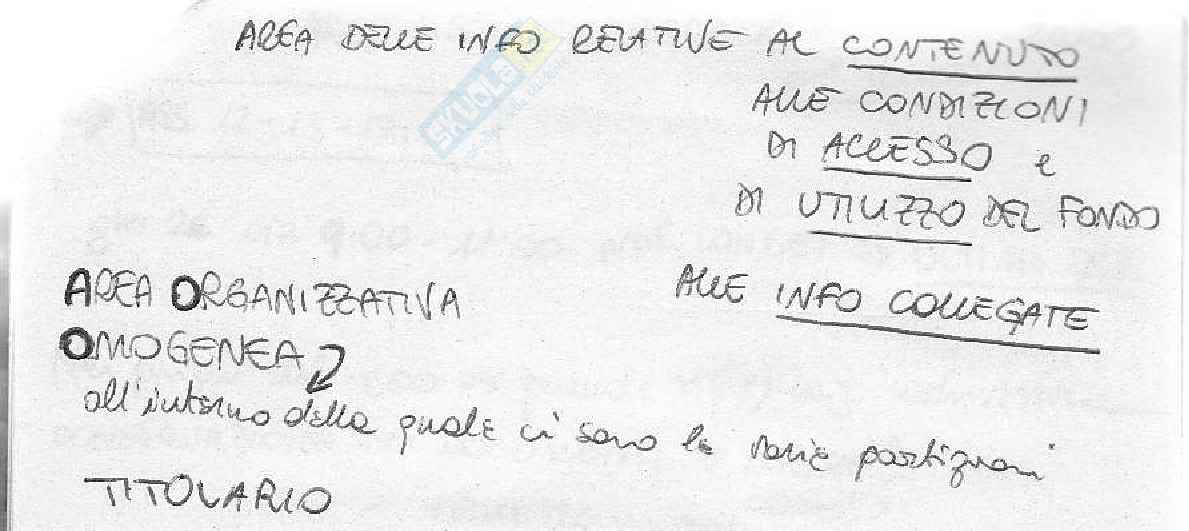 AREA DELLE INFO RELATIVE AL CONTENUTO
ALLE CONDIZIONI
DI ACCESSO e
DI UTILIZZO DEL FONDO
ALLE INFO COLLEGATE
AREA ORGANIZZATIVA
OMOGENEA
all'interno della quale ci sono le varie partizioni
TITOLARIO
SKUOLA